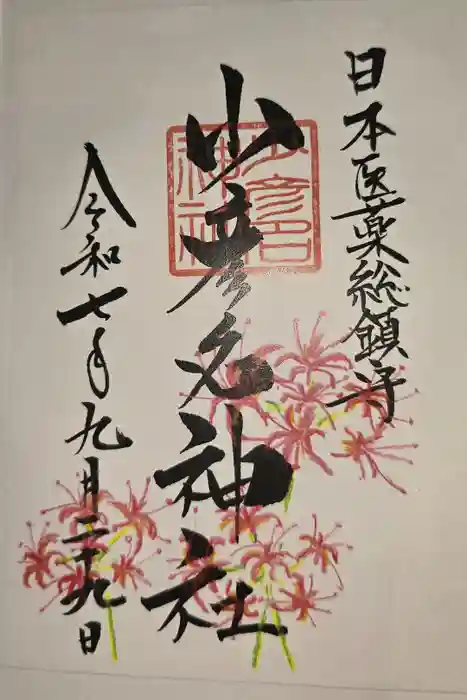 日本医薬総鎮守
少彦名神社
令和七年九月二十九日
少彦名
神社